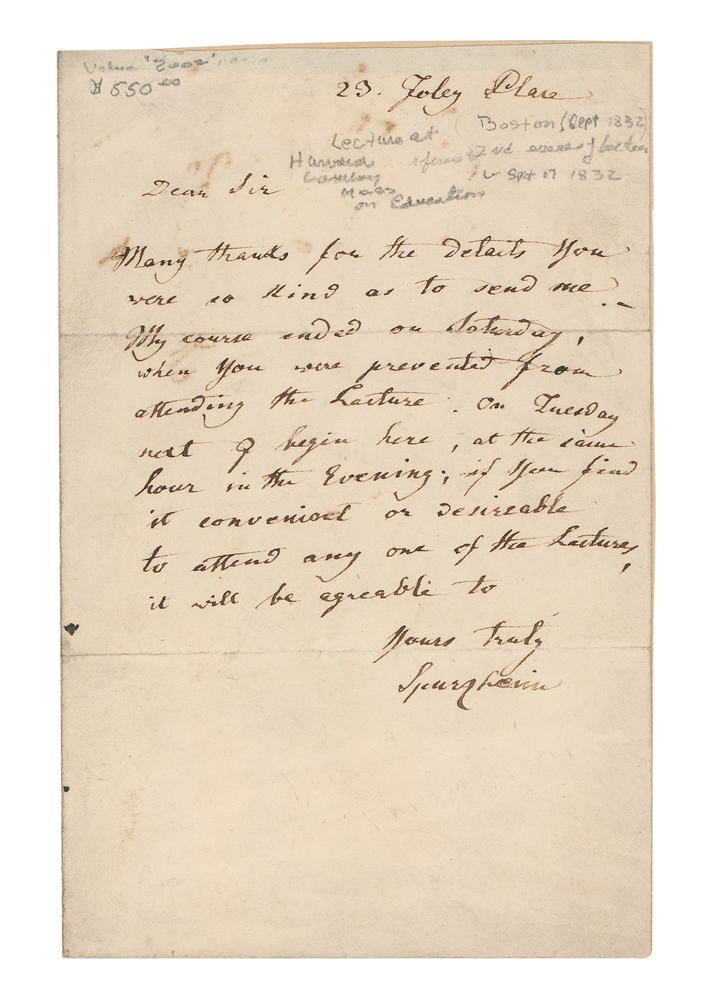 Value "2002"
$550.00
23. Foley Place
Boston (Sept 1832)
Lecture at
Harvard refers 2nd course of lectures
Sept 17 1832
Mass
on Education
Dear Sir
Many thanks for the details You
were so kind as to send me.
My course ended on Saturday,
when You were prevented from
attending the Lecture. On Tuesday
next I begin here, at the same
hour in the Evening; if You find
it convenient or desireable
to attend any one of the Lectures,
it will be agreable to
Yours truly
Spurzheim